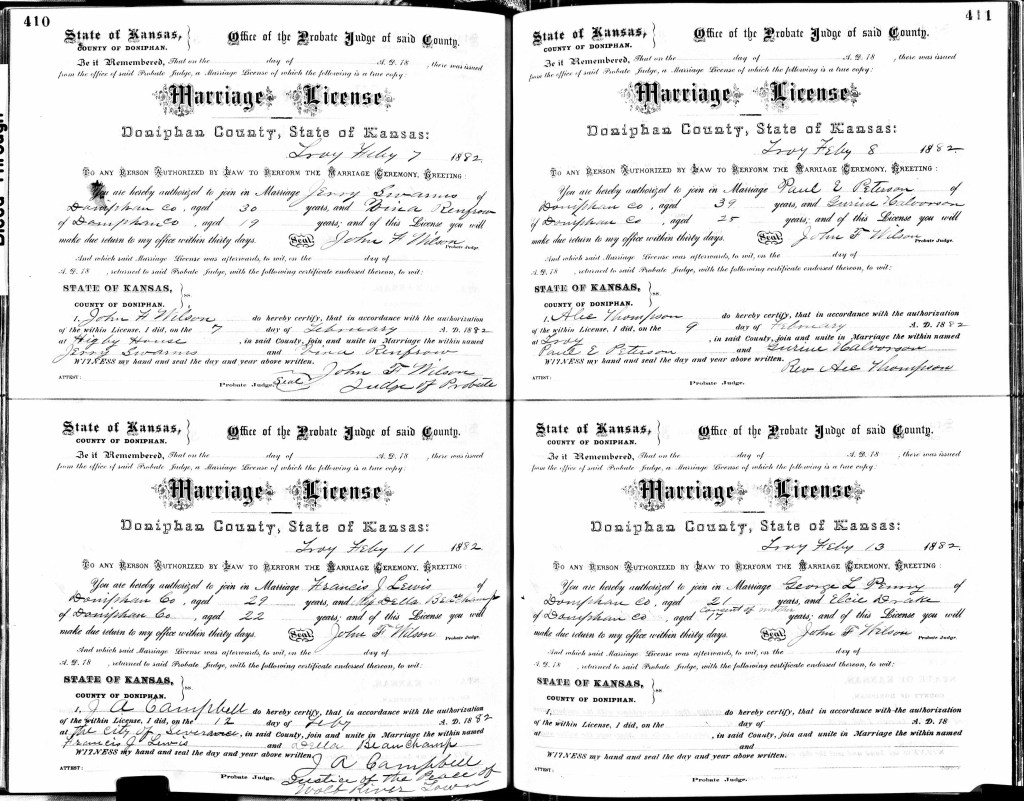 410
State of Kansas,
COUNTY OF DONIPHAN.
Office of the Probate Judge of said County.
Be it Remembered, That on the day of A. D. 18 , there was issued
from the office of said Probate Judge, a Marriage License of which the following is a true copy:
Marriage License
Doniphan County, State of Kansas:
Troy Feby 7 1882
TO ANY PERSON AUTHORIZED BY LAW TO PERFORM THE MARRIAGE CEREMONY, GREETING:
You are hereby authorized to join in Marriage Jerry Swamus of
Doniphan Co, aged 30 years, and Vina Renfrow
of Doniphan Co, aged 19 years; and of this License you will
make due return to my office within thirty days. Seal John F Wilson Probate Judge.
And which said Marriage License was afterwards, to wit, on the day of
A. D. 18 , returned to said Probate Judge, with the following certificate endorsed thereon, to wit:
STATE OF KANSAS, ss.
COUNTY OF DONIPHAN.
I, John F Wilson do hereby certify, that in accordance with the authorization
of the within License, I did, on the 7 day of February A. D. 1882
at Higby House , in said County, join and unite in Marriage the within named
Jerry Swamus and Vina Renfrow
WITNESS my hand and seal the day and year above written.
John F. Wilson
ATTEST: Probate Judge. Seal Judge of Probate
State of Kansas,
COUNTY OF DONIPHAN.
Office of the Probate Judge of said County.
Be it Remembered, That on the day of A. D. 18 , there was issued
from the office of said Probate Judge, a Marriage License of which the following is a true copy:
Marriage License
Doniphan County, State of Kansas:
Troy Feby 11 1882
TO ANY PERSON AUTHORIZED BY LAW TO PERFORM THE MARRIAGE CEREMONY, GREETING:
You are hereby authorized to join in Marriage Francis J Lewis of
Doniphan Co, aged 29 years, and Della Beauchamp
of Doniphan Co, aged 22 years; and of this License you will
make due return to my office within thirty days. Seal John F Wilson Probate Judge.
And which said Marriage License was afterwards, to wit, on the day of
A. D. 18 , returned to said Probate Judge, with the following certificate endorsed thereon, to wit:
STATE OF KANSAS, ss.
COUNTY OF DONIPHAN.
I, J A Campbell do hereby certify, that in accordance with the authorization
of the within License, I did, on the 12 day of Feby A. D. 1882
at the City of Severance, in said County, join and unite in Marriage the within named
Francis J Lewis and Della Beauchamp
WITNESS my hand and seal the day and year above written.
J A Campbell
ATTEST: Probate Judge. Justice of the Peace of
Wolf River Town
411
State of Kansas,
COUNTY OF DONIPHAN.
Office of the Probate Judge of said County.
Be it Remembered, That on the day of A. D. 18 , there was issued
from the office of said Probate Judge, a Marriage License of which the following is a true copy:
Marriage License
Doniphan County, State of Kansas:
Troy Feby 8 1882.
TO ANY PERSON AUTHORIZED BY LAW TO PERFORM THE MARRIAGE CEREMONY, GREETING:
You are hereby authorized to join in Marriage Paul E Peterson of
Doniphan Co, aged 39 years, and Gurine Halvorson
of Doniphan Co, aged 25 years; and of this License you will
make due return to my office within thirty days. Seal John F Wilson Probate Judge.
And which said Marriage License was afterwards, to wit, on the day of
A. D. 18 , returned to said Probate Judge, with the following certificate endorsed thereon, to wit:
STATE OF KANSAS, ss.
COUNTY OF DONIPHAN.
I, Thompson do hereby certify, that in accordance with the authorization
of the within License, I did, on the 9 day of February A. D. 1882
at Troy , in said County, join and unite in Marriage the within named
Paul E Peterson and Gurine Halvorson
WITNESS my hand and seal the day and year above written.
Rev Thompson
ATTEST: Probate Judge.
State of Kansas,
COUNTY OF DONIPHAN.
Office of the Probate Judge of said County.
Be it Remembered, That on the day of A. D. 18 , there was issued
from the office of said Probate Judge, a Marriage License of which the following is a true copy:
Marriage License
Doniphan County, State of Kansas:
Troy Feby 13 1882.
TO ANY PERSON AUTHORIZED BY LAW TO PERFORM THE MARRIAGE CEREMONY, GREETING:
You are hereby authorized to join in Marriage George L Penny of
Doniphan Co, aged 21 years, and Elsie Drake
consent of mother
of Doniphan Co aged 17 years; and of this License you will
make due return to my office within thirty days. Seal John F Wilson Probate Judge.
And which said Marriage License was afterwards, to wit, on the day of
A. D. 18 , returned to said Probate Judge, with the following certificate endorsed thereon, to wit:
STATE OF KANSAS, ss.
COUNTY OF DONIPHAN.
I, do hereby certify, that in accordance with the authorization
of the within License, I did, on the day of A. D. 18
at , in said County, join and unite in Marriage the within named
and
WITNESS my hand and seal the day and year above written.
ATTEST: Probate Judge.